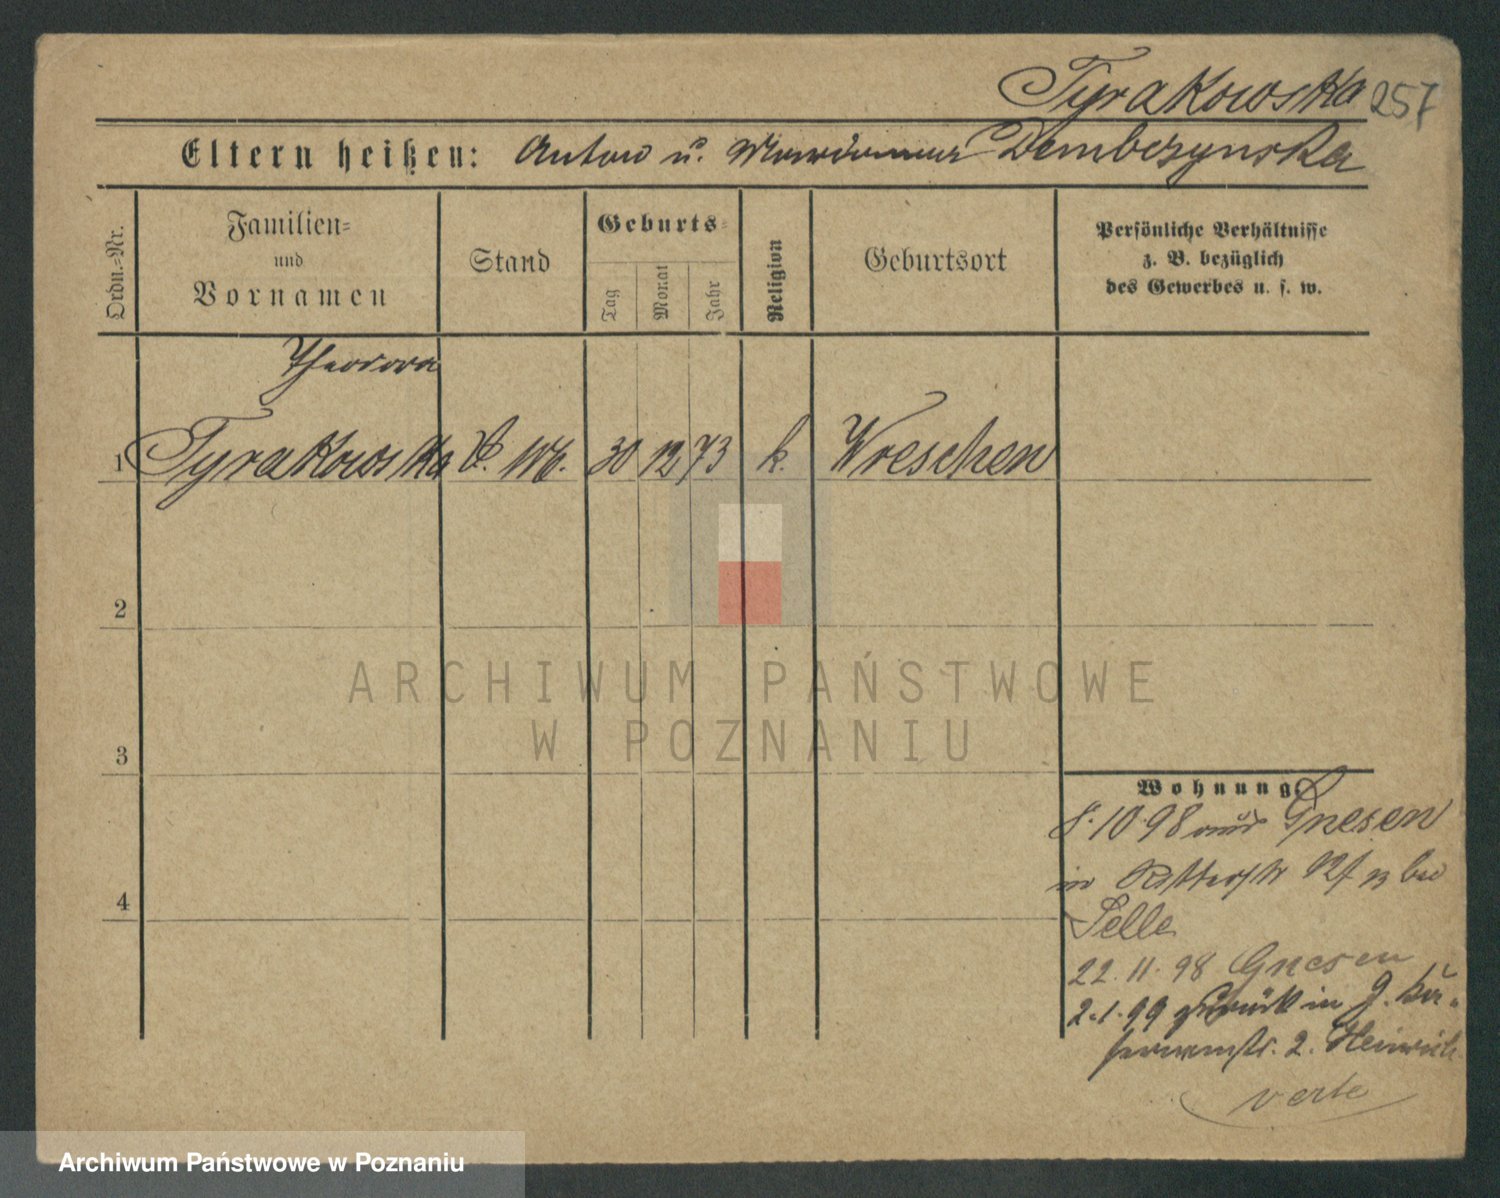 Tyrakowska 257
Eltern heißen: Anton u. Dembczynska
Ordn.=Nr.
Familien=
und
Vornamen
Stand
Geburts=
Tag
Monat
Jahr
Religion
Geburtsort
Persönliche Verhältnisse
z. B. bezüglich
des Gewerbes u. s. w.
Theodora
1 Tyrakowska 30 12 73 k. Wreschen
2
3
4
ARCHIWUM PAŃSTWOWE
W POZNANIU
Wohnung.
8.10.98 aus Gnesen
in Ritterstr bei
Selle
22.11.98 Gnesen
2.1.99 zurück in g. Ka-
sernenstr. 2. Heinrich
verte
Archiwum Państwowe w Poznaniu